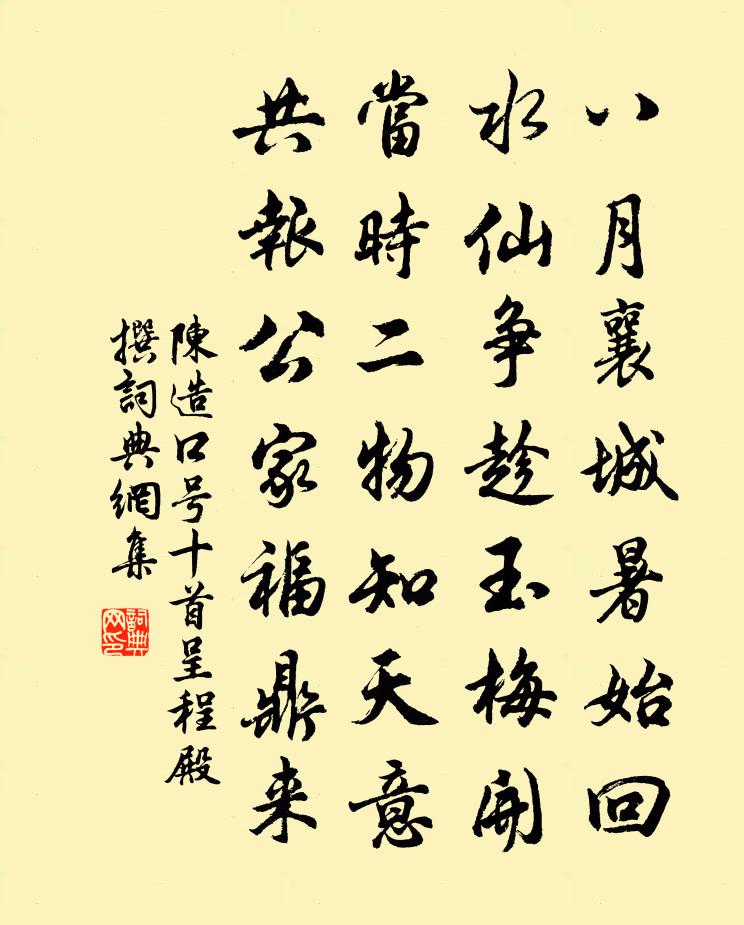 八月襄城暑始回
水仙争趁玉梅開
當時二物知天意
共報公家福鼎来
陳造口号十首呈程殿
撰詞典網集
詞典網印